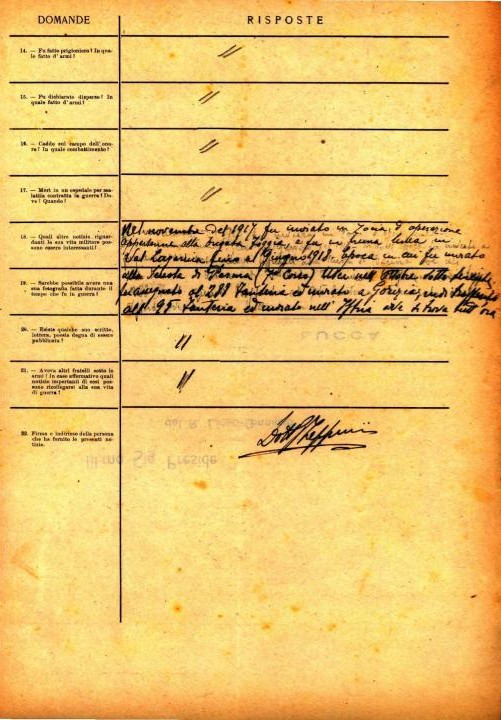 DOMANDE
RISPOSTE
14. — Fu fatto prigioniero? In qua-
le fatto d'armi?
"
15. — Fu dichiarato disperso? In
quale fatto d'armi?
"
16. — Cadde sul campo dell'ono-
re? In quale combattimento?
"
17. — Morì in un ospedale per ma-
lattia contratta in guerra? Do-
ve? Quando?
"
18. — Quali altre notizie riguar-
danti la sua vita militare pos-
sono essere interessanti?
Nel novembre del 1917 fu inviato in zona d'operazione
appartenne alla brigata Foggia e fu in linea in
Val Lagarina fino a Giugno 1918 epoca in cui fu inviato
alla Scuola di Parma (7° Corso) Uscì nell'Ottobre detto
assegnato al 288 Fanteria ed inviato a Gorizia, indi
al 95 Fanteria ed inviato nell'Istria ove si trova tutt'ora
19. — Sarebbe possibile avere una
sua fotografia fatta durante il
tempo che fu in guerra?
20. — Esiste qualche suo scritto,
lettera, poesia degna di essere
pubblicata?
"
LUCCA
21. — Aveva altri fratelli sotto le
armi? In caso affermativo quali
notizie importanti di essi pos-
sono ricollegarsi alla sua vita
di guerra?
"
22. Firma e indirizzo della persona
che ha fornito le presenti no-
tizie.
Dott.
del R. Liceo-Ginnasio
Ill.mo Sig. Preside